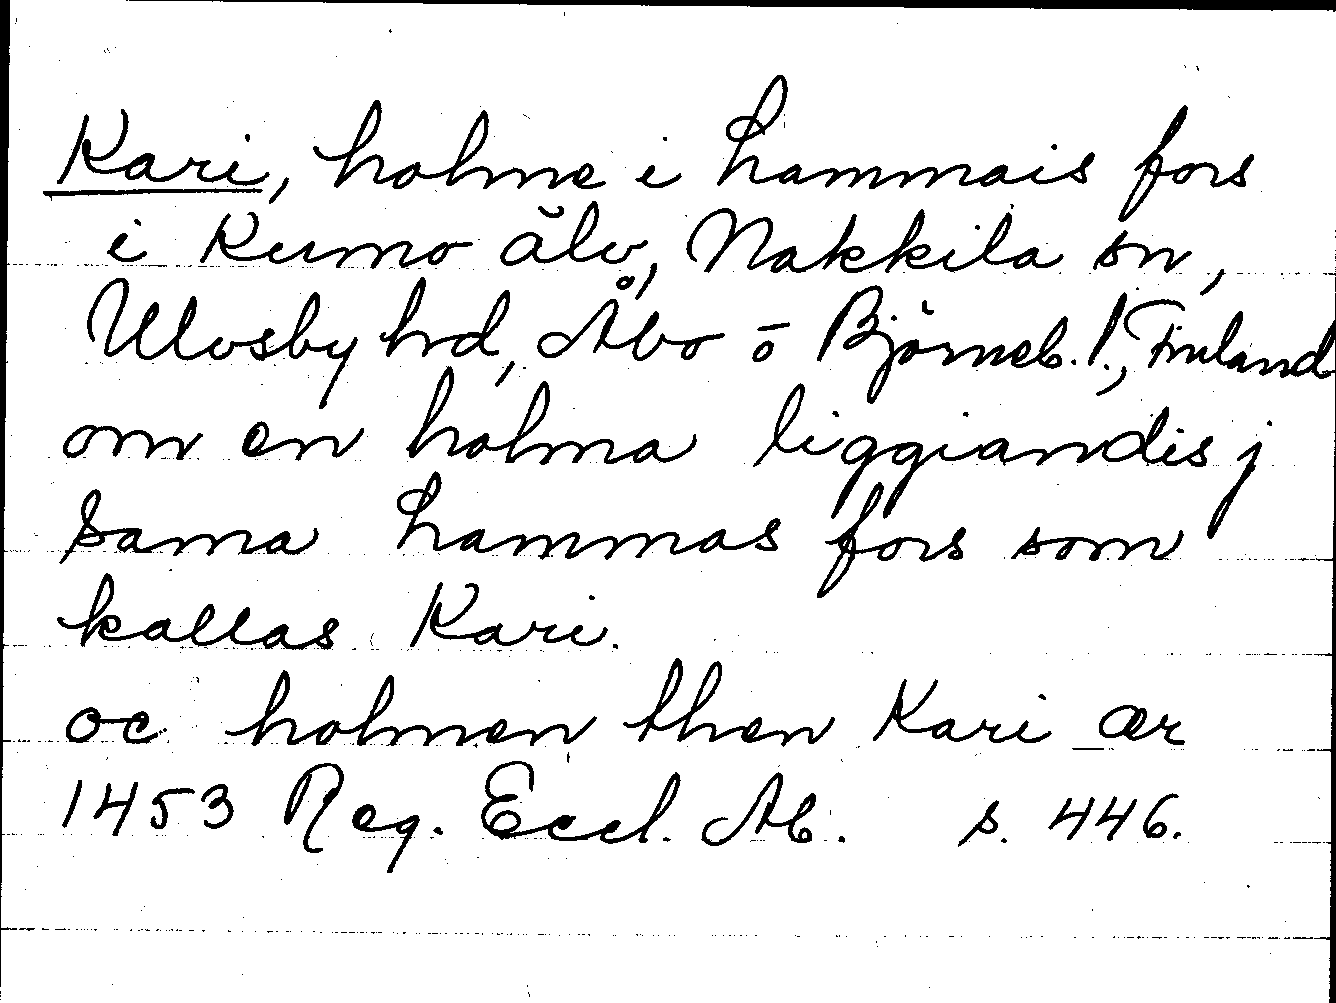 Kari, holme i Hammais fors
i Kumo älv, Nakkila sn,
Ulvsby hd, Åbo o Björneb. l., Finland
om en holma liggiandis j
sama Hammas fors som
kallas Kari.
oc holmen then Kari ær
1453 Reg. Eccl. Ab. s. 446.